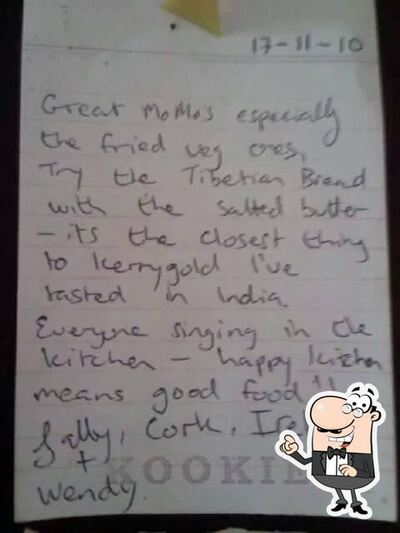 17-11-10
Great MoMo's especially
the fried veg ones,
Try the Tibetian Bread
with the salted butter
- its the closest thing
to kerrygold I've
tasted in India.
Everyone singing in the
kitchen - happy kitchen
means good food!!
Sally, Cork, Ire
+
Wendy.
KOOKIE